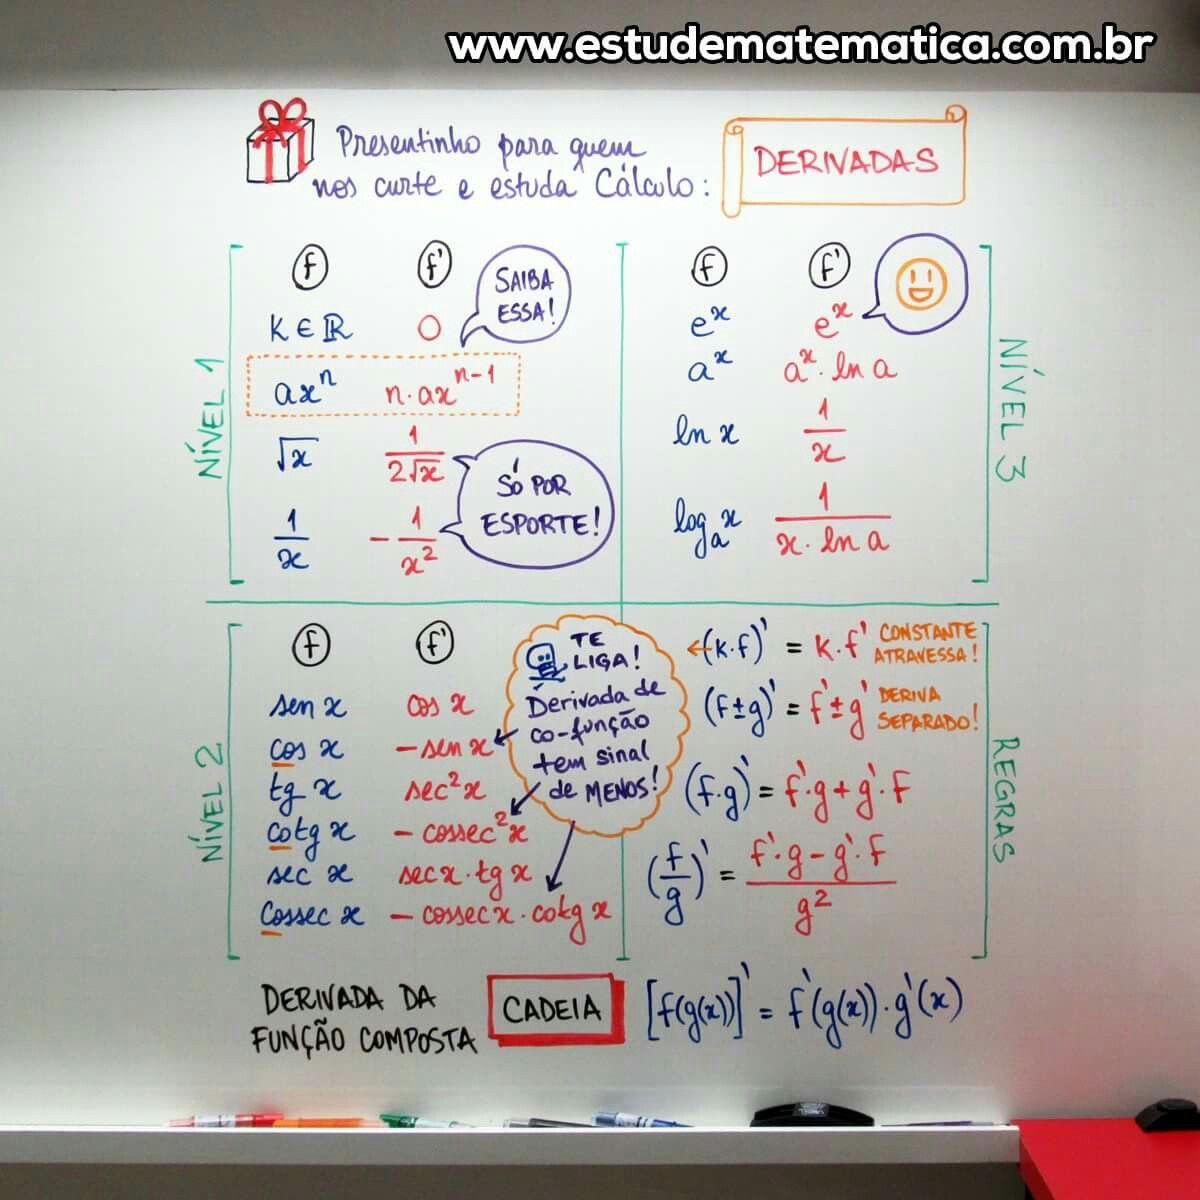 www.estudematematica.com.br
Presentinho para quem
nos curte e estuda Cálculo:
DERIVADAS
NÍVEL 1
f f'
SAIBA
ESSA!
K ∈ ℝ 0
axⁿ n·axⁿ⁻¹
√x 1/(2√x)
SÓ POR
ESPORTE!
1/x -1/x²
NÍVEL 3
f f'
eˣ eˣ
aˣ aˣ·ln a
ln x 1/x
logₐx 1/(x·ln a)
NÍVEL 2
f f'
sen x cos x
cos x -sen x
tg x sec²x
cotg x -cossec²x
sec x secx·tg x
Cossec x -cossec x·cotg x
TE
LIGA!
Derivada de
co-função
tem sinal
de MENOS!
REGRAS
(k·f)' = k·f' CONSTANTE
ATRAVESSA!
(f±g)' = f'±g' DERIVA
SEPARADO!
(f·g)' = f'·g+g'·f
(f/g)' = (f'·g-g'·f)/g²
DERIVADA DA
FUNÇÃO COMPOSTA
CADEIA
[f(g(x))]' = f'(g(x))·g'(x)